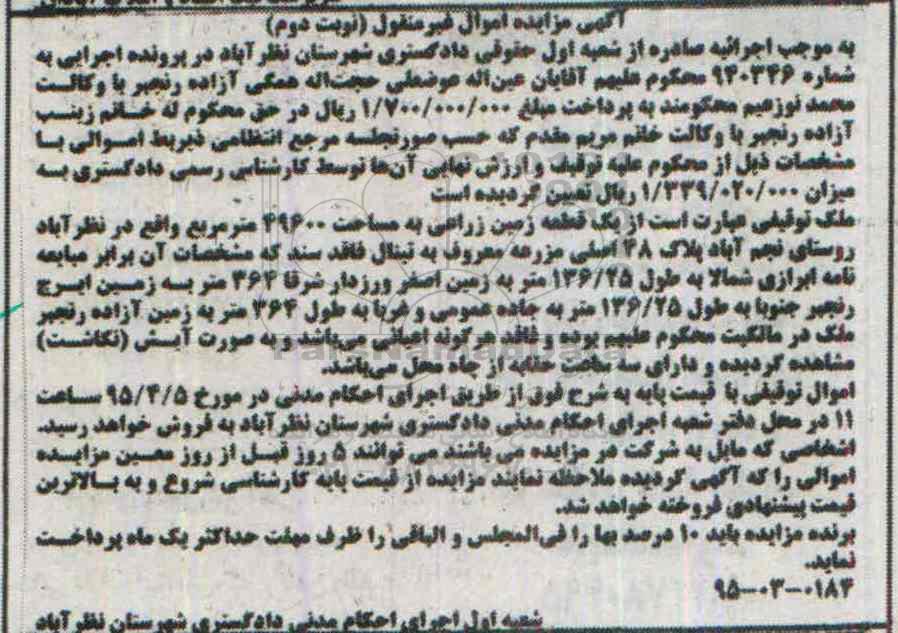 آگهی مزایده اموال غیرمنقول (نوبت دوم)
به موجب اجرائیه صادره از شعبه اول حقوقی دادگستری شهرستان نظرآباد در پرونده اجرایی به
شماره ۹۴۰۳۴۶ محکوم علیهم آقایان عین‌اله عوضعلی حجت‌اله همگی آزاده رنجبر با وکالت
محمد نوزعیم محکومند به پرداخت مبلغ ۱/۷۰۰/۰۰۰/۰۰۰ ریال در حق محکوم له خانم زینب
آزاده رنجبر با وکالت خانم مریم مقدم که حسب صورتجلسه مرجع انتظامی ذیربط اموالی با
مشخصات ذیل از محکوم علیه توقیف و ارزش نهایی آن‌ها توسط کارشناس رسمی دادگستری به
میزان ۱/۳۳۹/۰۲۰/۰۰۰ ریال تعیین گردیده است
ملک توقیفی عبارت است از یک قطعه زمین زراعی به مساحت ۴۹۶۰۰ مترمربع واقع در نظرآباد
روستای نجم آباد پلاک ۴۸ اصلی مزرعه معروف به تبنال فاقد سند که مشخصات آن برابر مبایعه
نامه ابرازی شمالا به طول ۱۳۶/۲۵ متر به زمین اصغر ورزدار شرقا ۳۶۴ متر به زمین ایرج
رنجبر جنوبا به طول ۱۳۶/۲۵ متر به جاده عمومی و غربا به طول ۳۶۴ متر به زمین آزاده رنجبر
ملک در مالکیت محکوم علیهم بوده و فاقد هرگونه اعیانی می‌باشد و به صورت آیش (نکاشت)
مشاهده گردیده و دارای سه ساعت حقابه از چاه محل می‌باشد.
اموال توقیفی با قیمت پایه به شرح فوق از طریق اجرای احکام مدنی در مورخ ۹۵/۴/۵ ساعت
۱۱ در محل دفتر شعبه اجرای احکام مدنی دادگستری شهرستان نظرآباد به فروش خواهد رسید.
اشخاصی که مایل به شرکت در مزایده می باشند می توانند ۵ روز قبل از روز معین مزایده
اموالی را که آگهی گردیده ملاحظه نمایند مزایده از قیمت پایه کارشناسی شروع و به بالاترین
قیمت پیشنهادی فروخته خواهد شد.
برنده مزایده باید ۱۰ درصد بها را فی‌المجلس و الباقی را ظرف مهلت حداکثر یک ماه پرداخت
نماید.
۹۵-۰۳-۰۱۸۴
شعبه اول اجرای احکام مدنی دادگستری شهرستان نظرآباد